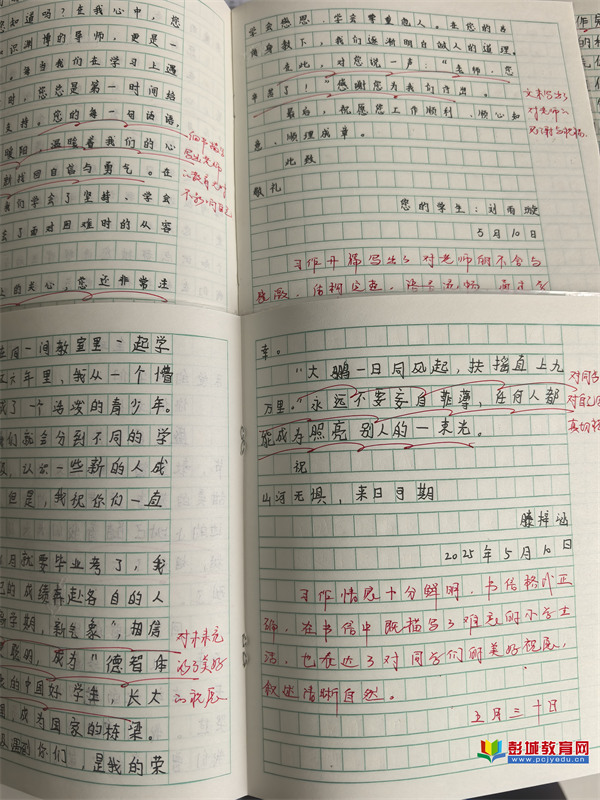 您知道吗？在我心中，您
识渊博的导师，更是一
。每当我们在学习上遇
时，您总是第一时间给
支持。您的每一句话语，
暖阳，温暖着我们的心
新找回自信与勇气。在
我们学会了坚持、学会
会了面对困难时的从容
上的关心，您还非常注
学会感恩，学会尊重他人。在您的言
传身教下，我们逐渐明白做人的道理。
在此，对您说一声：“老师，您
辛苦了！”感谢您为我们付出。
最后，祝愿您工作顺利，顺心如
意，顺理成章。
此致
敬礼
您的学生：刘雨璇
5月10日
文末写出了
对老师的
习作开篇写出了对老师的不舍与
在同一间教室里一起学
六年里，我从一个懵
成了一个活泼的青少年。
们就会分到不同的学
，认识一些新的人成
但是，我祝你们一直
月就要毕业考了，我
的成绩再赴各自的人
新学期，新气象”，相信
的，成为“德智体
的中国好学生，长大
，成为国家的栋梁。
你们，是我的荣
对未来充
满了美好
的祝愿
幸。
“大鹏一日同风起，扶摇直上九
万里。”永远不要妄自菲薄，任何人都
能成为照亮别人的一束光。
祝
山河无惧，来日可期
滕梓涵
2025年5月10日
对同学
对自己
真切
习作情感十分鲜明，书信格式正
确，在书信中既描写了难忘的小学生
活，也表达了对同学们的美好祝愿，
叙述清晰自然。
五月三十日
彭城教育网
www.pcjyedu.cn